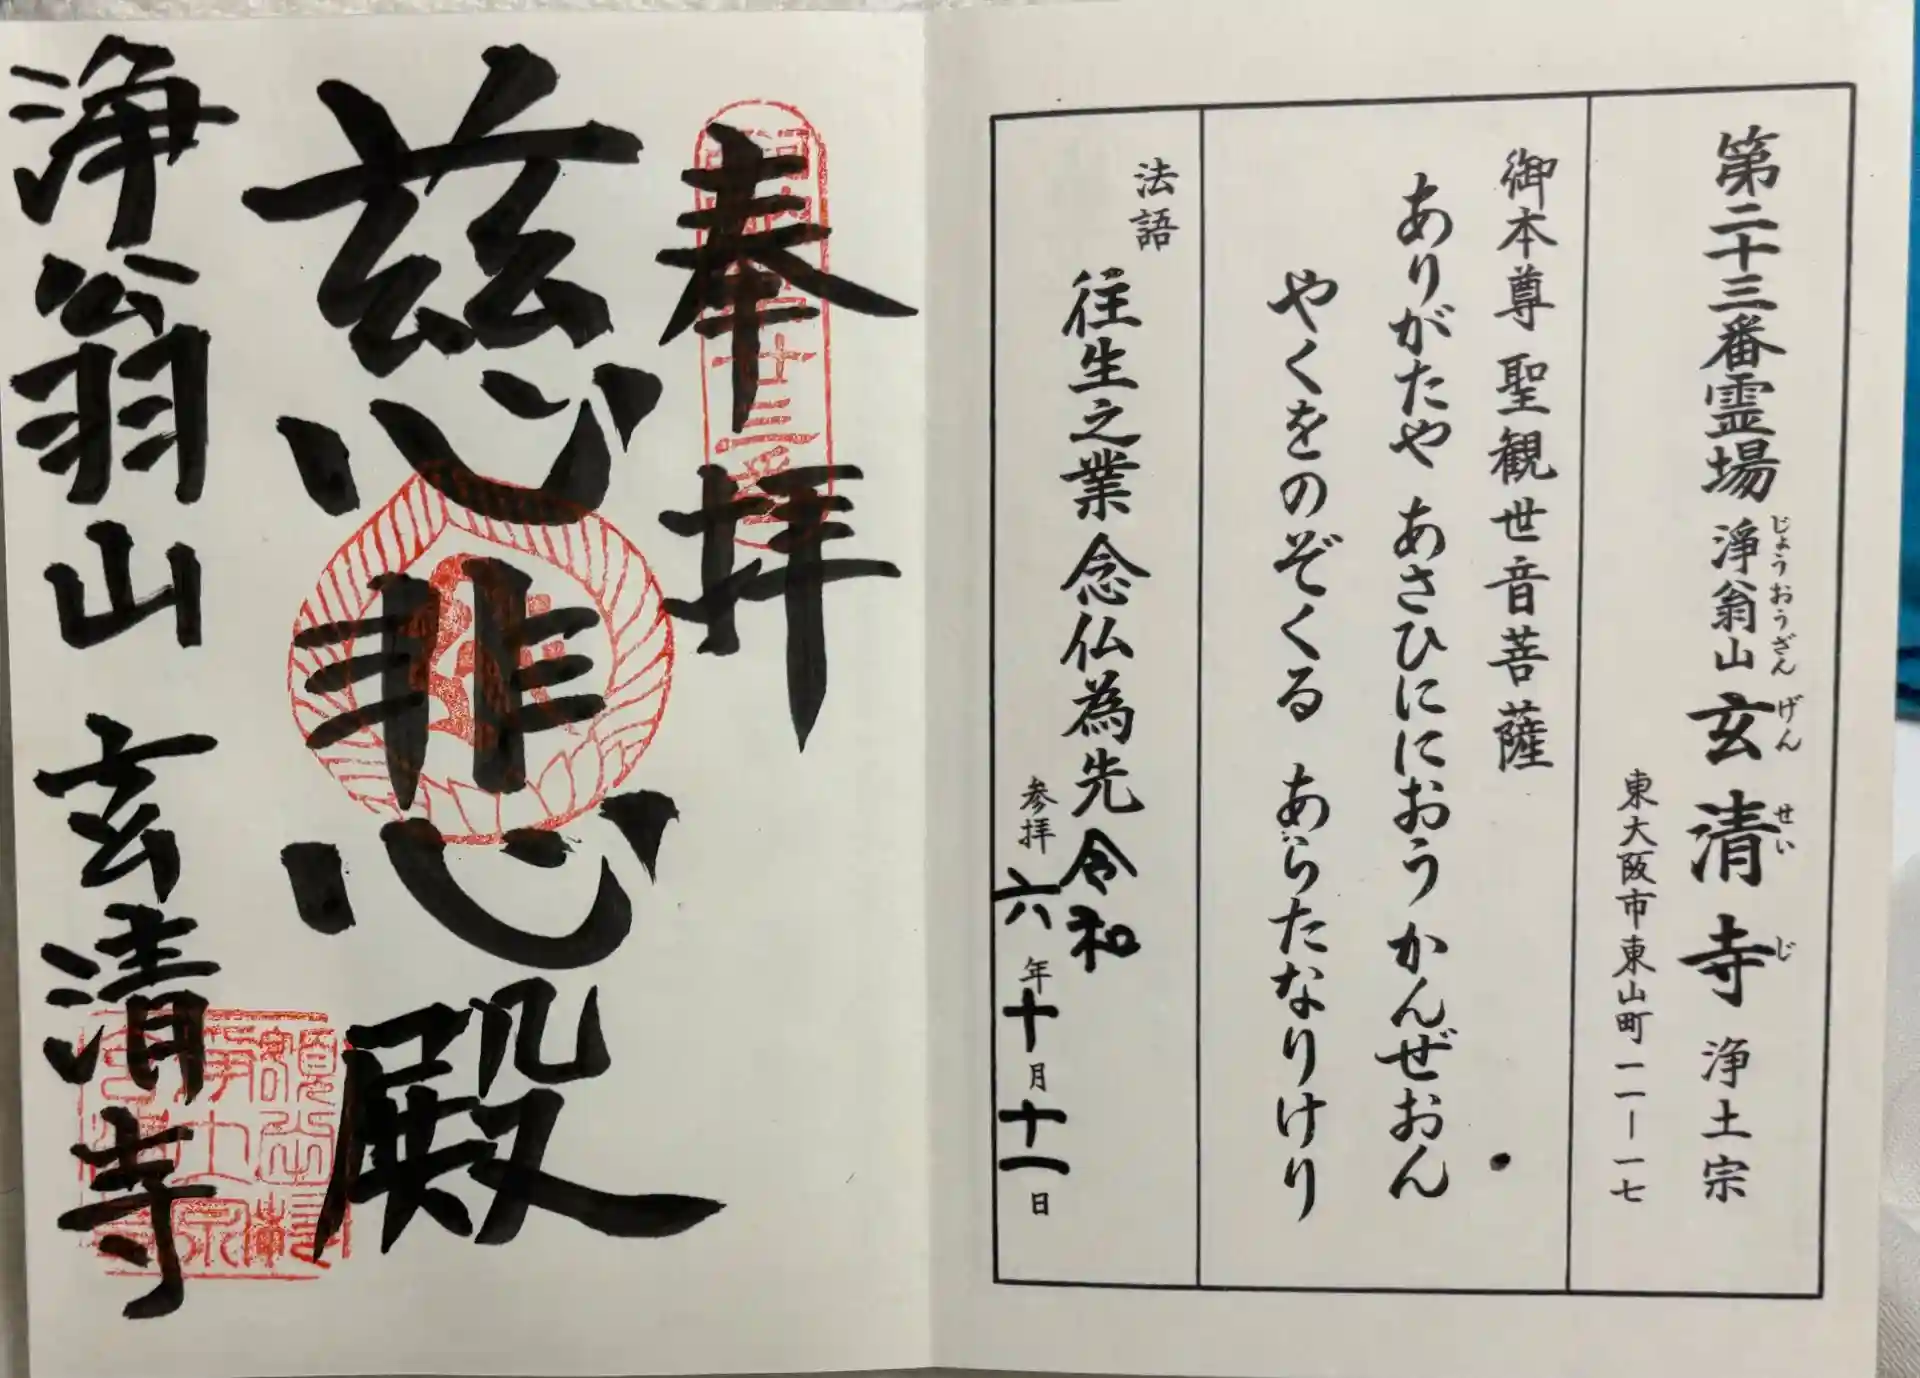 第二十三番霊場 浄翁山 玄清寺 浄土宗
じょうおうざん げん せい じ
東大阪市東山町一一ー一七
御本尊 聖観世音菩薩
ありがたや あさひににおう かんぜおん
やくをのぞくる あらたなりけり
法語
往生之業 念仏為先
参拝 令和六年十月十一日
奉拝
慈悲殿
浄翁山 玄清寺